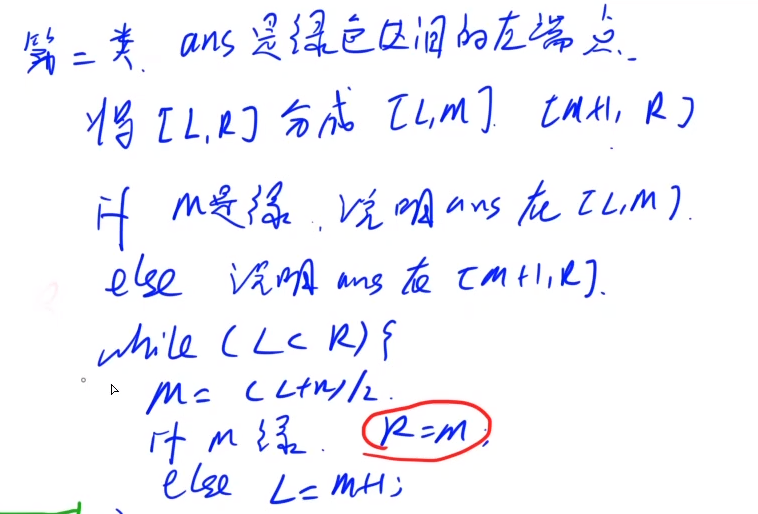 第二类. ans是绿色区间的左端点.
将[L,R]分成[L,M]. [M+1, R]
if M是绿, 说明ans在[L,M].
else 说明ans在[M+1,R].
while (L< R){
M= (L+R)/2.
if M绿. R=M;
else L=M+1;
}